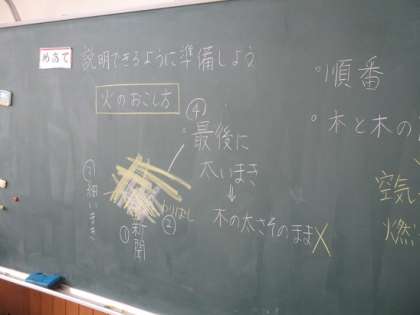 めあて
説明できるように準備しよう
火のおこし方
④
最後に
太いまき
↓
木の太さそのまま×
③細いまき
①新聞
わりばし
②
°順番
°木と木の
空気
燃